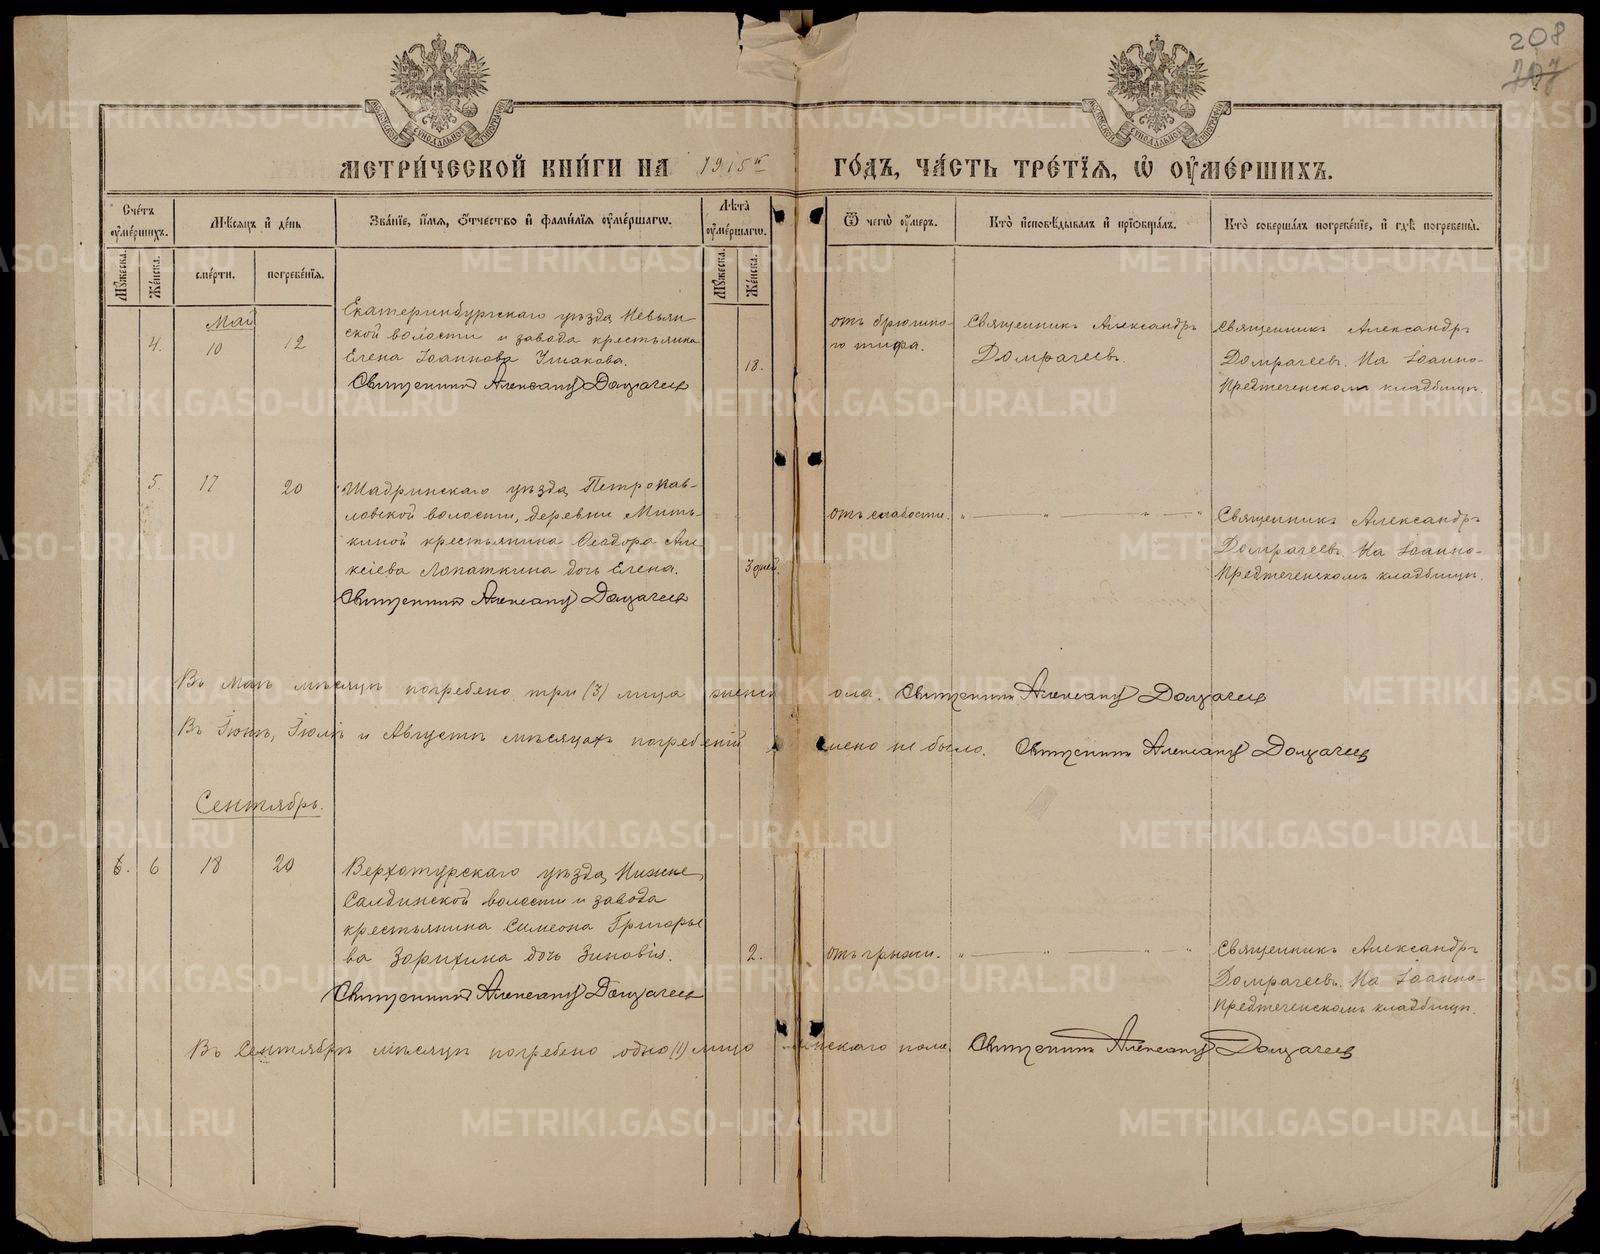 208
707
МЕТРИ́ЧЕСКОЙ КНИ́ГИ НА 1915й ГО́ДЪ, ЧА́СТЬ ТРЕ́ТІЯ, Ѡ҆ ОУ҆МЕ́РШИХЪ.
Сче́тъ оу҆ме́ршихъ.
Мѣ́сяцъ и҆ де́нь
Зва́нїе, и҆́мя, ѻ҆́тчество и҆ фами́лїя оу҆ме́ршагѡ.
Лѣ́та оу҆ме́ршагѡ.
Ѿ чегѡ̀ оу҆́меръ.
Кто̀ и҆сповѣ́дывалъ и҆ прїѡбща́лъ.
Кто̀ соверша́лъ погребе́нїе, и҆ гдѣ̀ погребены̀.
Мꙋ́жеска.
Же́нска.
сме́рти.
погребе́нїя.
Мꙋ́жеска.
Же́нска.
Май
4.
10
12
Екатеринбургскаго уѣзда, Невьян-
ской волости и завода крестьянка
Елена Іоаннова Ушакова.
Священникъ Александръ Домрачеевъ
18.
отъ брюшно-
го тифа.
Священникъ Александръ
Домрачеевъ.
Священникъ Александръ
Домрачеевъ. На Іоанно-
Предтеченскомъ кладбищѣ.
5.
17
20
Шадринскаго уѣзда, Петропав-
ловской волости, деревни Мить-
киной крестьянина Ѳеодора Але
ксіева Лопаткина дочь Елена.
Священникъ Александръ Домрачеевъ
3 дней.
отъ слабости.
" — " — " — "
Священникъ Александръ
Домрачеевъ. На Іоанно-
Предтеченскомъ кладбищѣ.
Въ Маѣ мѣсяцѣ погребено три (3) лица женск ола. Священникъ Александръ Домрачеевъ
Въ Іюнѣ, Іюлѣ и Августѣ мѣсяцахъ погребеній шено не было. Священникъ Александръ Домрачеевъ
Сентябрь.
6.
6
18
20
Верхотурскаго уѣзда, Нижне
Салдинской волости и завода
крестьянина Симеона Григорье
ва Зорихина дочь Зиновія.
Священникъ Александръ Домрачеевъ
2.
отъ грыжи.
" — " — " — "
Священникъ Александръ
Домрачеевъ. На Іоанно-
Предтеченскомъ кладбищѣ.
Въ Сентябрѣ мѣсяцѣ погребено одно (1) лицо женскаго пола. Священникъ Александръ Домрачеевъ
METRIKI.GASO-URAL.RU